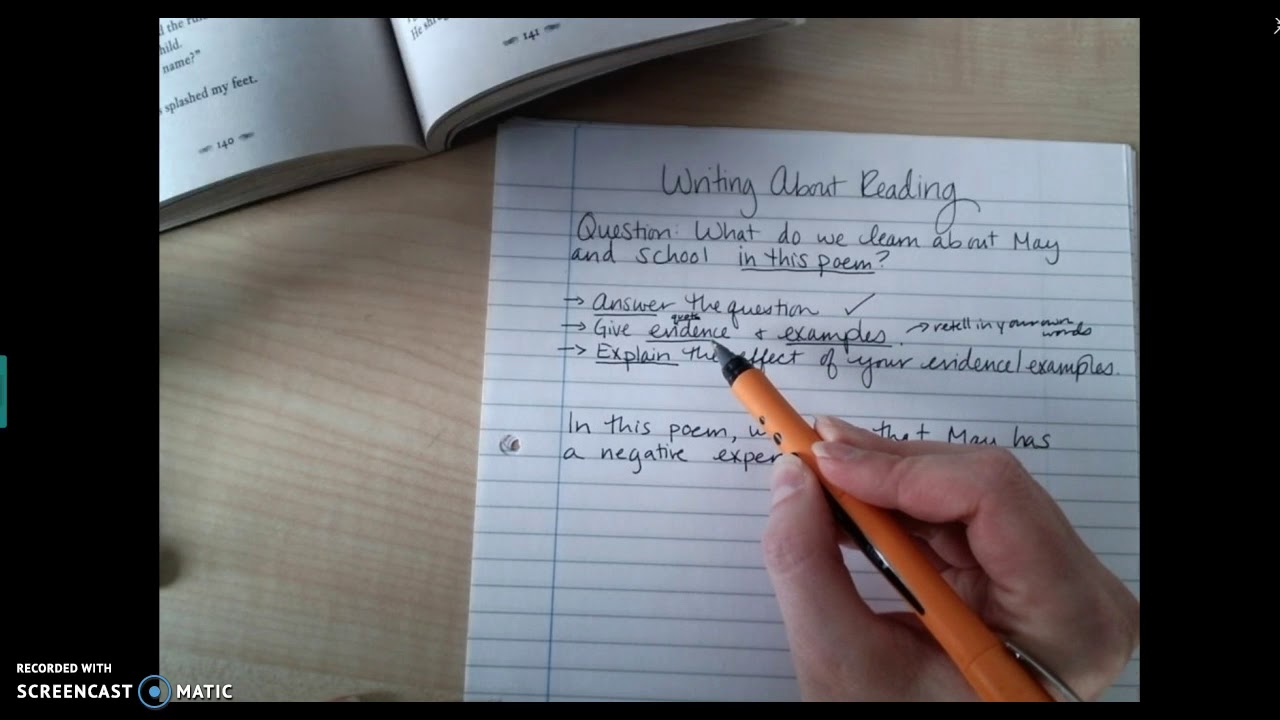 d the
hild.
name?"
splashed my feet.
140
He
141
Writing About Reading
Question: What do we learn about May
and school in this poem?
→ Answer the question ✓
quote
→ Give evidence + examples. → retell in your own
words
→ Explain the effect of your evidence/examples.
In this poem, that May has
a negative
RECORDED WITH
SCREENCAST MATIC